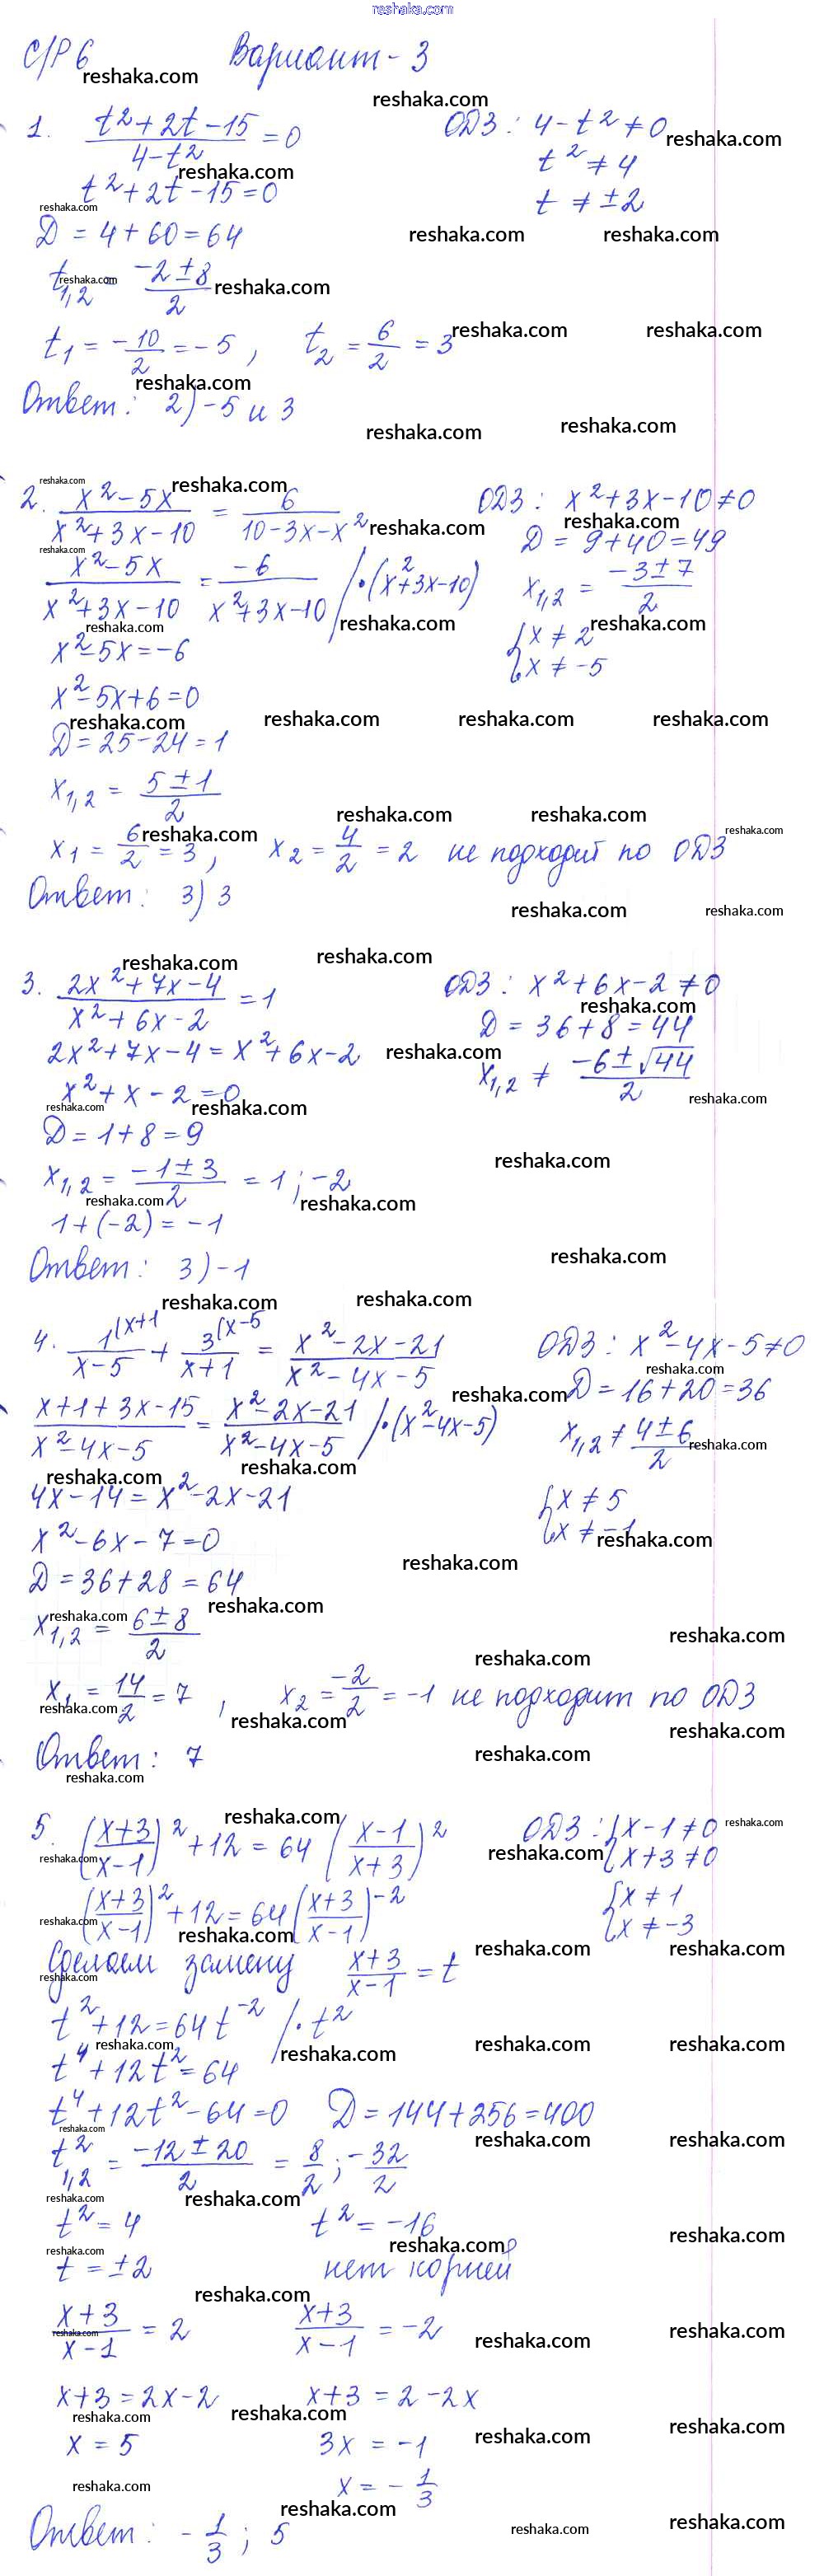 reshaka.com
С/Р 6 Вариант - 3
1. (t² + 2t - 15)/(4 - t²) = 0 ОДЗ: 4 - t² ≠ 0
t² ≠ 4
t² + 2t - 15 = 0
t ≠ ±2
D = 4 + 60 = 64
t₁,₂ = (-2 ± 8)/2
t₁ = -10/2 = -5, t₂ = 6/2 = 3
Ответ: 2) -5 и 3
2. (x² - 5x)/(x² + 3x - 10) = 6/(10 - 3x - x²) ОДЗ: x² + 3x - 10 ≠ 0
D = 9 + 40 = 49
(x² - 5x)/(x² + 3x - 10) = -6/(x² + 3x - 10) / · (x² + 3x - 10) x₁,₂ = (-3 ± 7)/2
x² - 5x = -6 { x ≠ 2
x ≠ -5
x² - 5x + 6 = 0
D = 25 - 24 = 1
x₁,₂ = (5 ± 1)/2
x₁ = 6/2 = 3, x₂ = 4/2 = 2 не подходит по ОДЗ
Ответ: 3) 3
3. (2x² + 7x - 4)/(x² + 6x - 2) = 1 ОДЗ: x² + 6x - 2 ≠ 0
D = 36 + 8 = 44
2x² + 7x - 4 = x² + 6x - 2 x₁,₂ ≠ (-6 ± √44)/2
x² + x - 2 = 0
D = 1 + 8 = 9
x₁,₂ = (-1 ± 3)/2 = 1; -2
1 + (-2) = -1
Ответ: 3) -1
4. 1(x+1/(x - 5) + 3(x-5/(x + 1) = (x² - 2x - 21)/(x² - 4x - 5) ОДЗ: x² - 4x - 5 ≠ 0
D = 16 + 20 = 36
(x + 1 + 3x - 15)/(x² - 4x - 5) = (x² - 2x - 21)/(x² - 4x - 5) / · (x² - 4x - 5) x₁,₂ ≠ (4 ± 6)/2
4x - 14 = x² - 2x - 21 { x ≠ 5
x ≠ -1
x² - 6x - 7 = 0
D = 36 + 28 = 64
x₁,₂ = (6 ± 8)/2
x₁ = 14/2 = 7, x₂ = -2/2 = -1 не подходит по ОДЗ
Ответ: 7
5. ((x + 3)/(x - 1))² + 12 = 64 ((x - 1)/(x + 3))² ОДЗ: { x - 1 ≠ 0
x + 3 ≠ 0
((x + 3)/(x - 1))² + 12 = 64 ((x + 3)/(x - 1))⁻² { x ≠ 1
x ≠ -3
Сделаем замену (x + 3)/(x - 1) = t
t² + 12 = 64 t⁻² / · t²
t⁴ + 12t² = 64
t⁴ + 12t² - 64 = 0 D = 144 + 256 = 400
t²₁,₂ = (-12 ± 20)/2 = 8/2; -32/2
t² = 4 t² = -16
t = ±2 нет корней
(x + 3)/(x - 1) = 2 (x + 3)/(x - 1) = -2
x + 3 = 2x - 2 x + 3 = 2 - 2x
x = 5 3x = -1
x = -1/3
Ответ: -1/3; 5